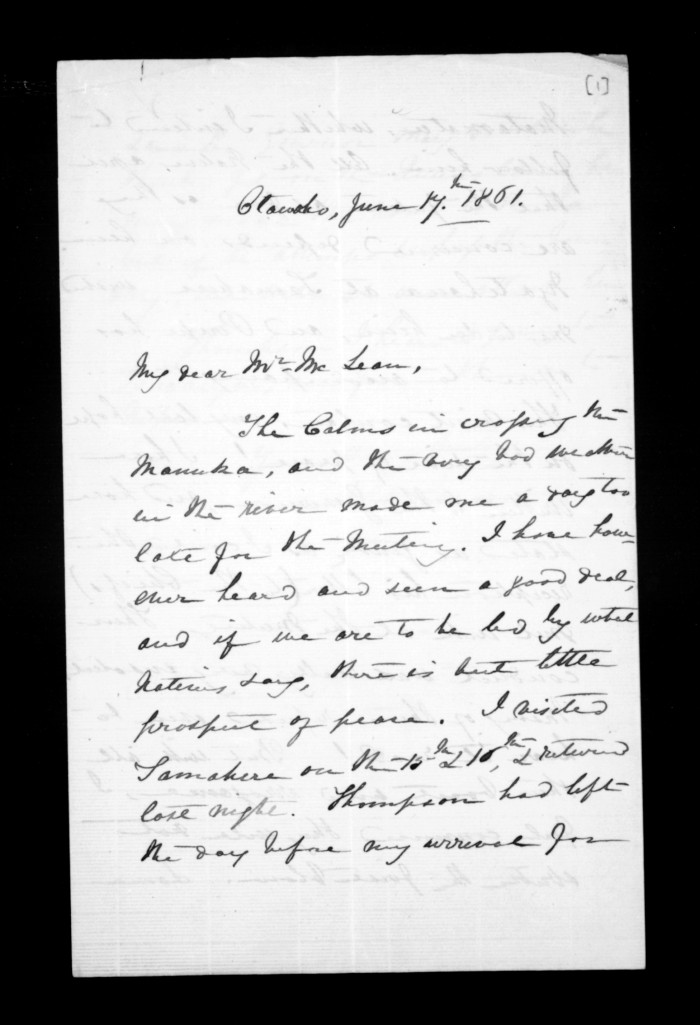 [1]
Otawhao, June 17.th 1861.
My dear Mr. McLean,
The Calms in crossing the
Manuka, and the very bad weather
in the river made me a day too
late for the Meeting. I have how-
ever heard and seen a good deal,
and if we are to be led by what
Natives say, there is but little
prospect of peace. I visited
Tamahere on the 15th & 16th, & returned
last night. Thompson had left
the day before my arrival for